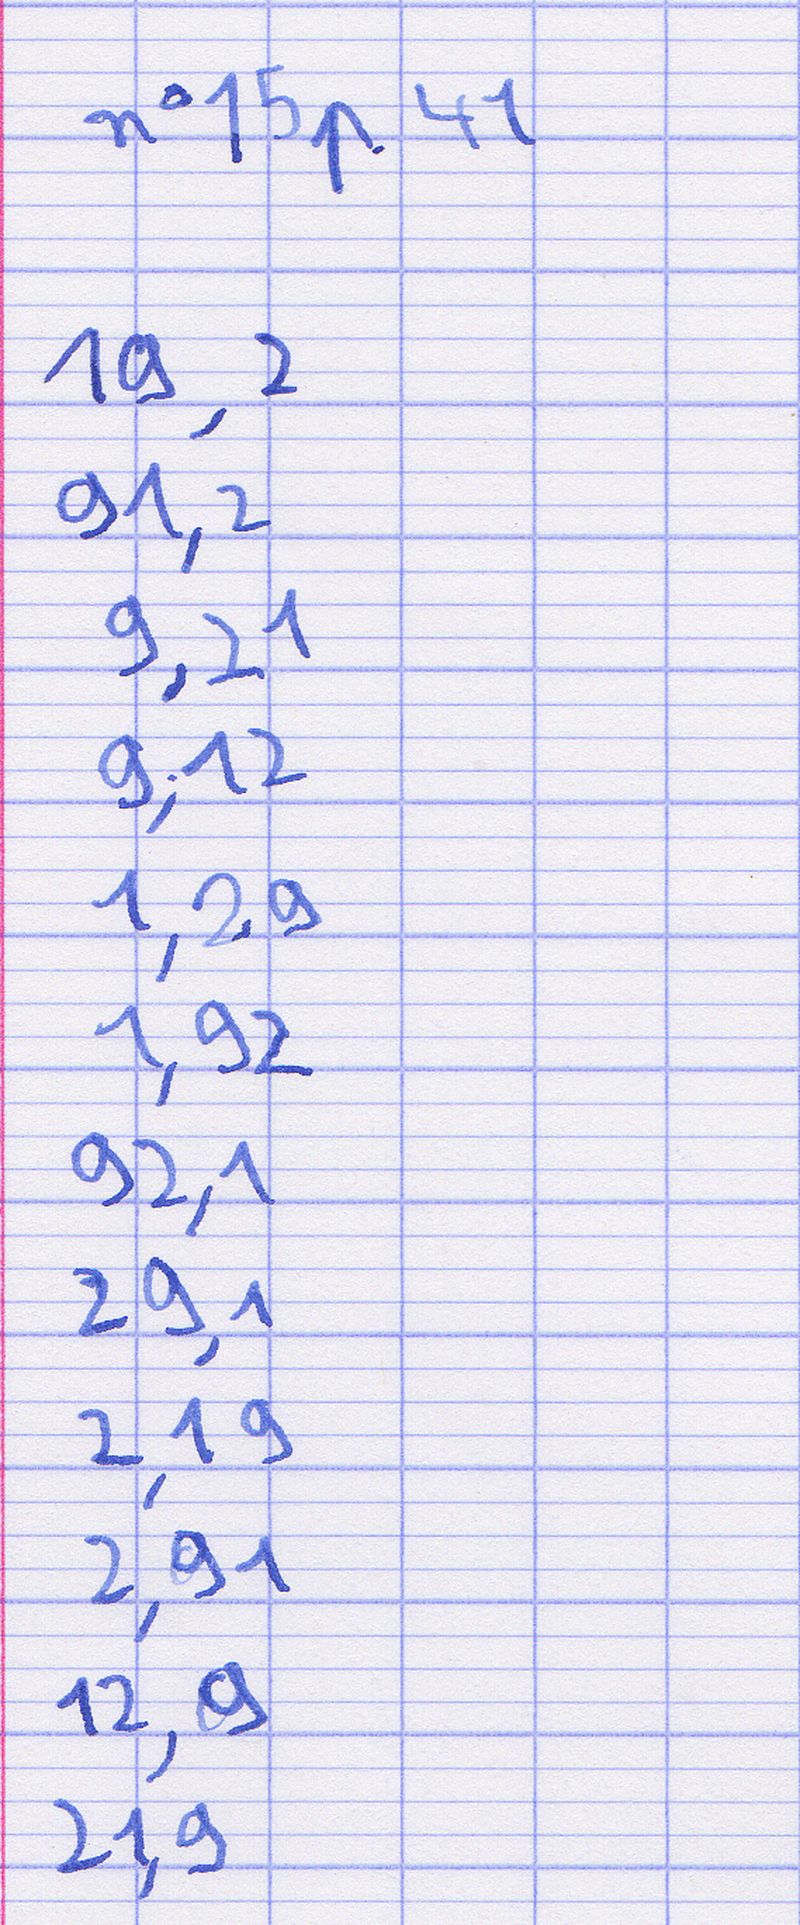 n°15 p. 41
19,2
91,2
9,21
9,12
1,29
1,92
92,1
29,1
2,19
2,91
12,9
21,9